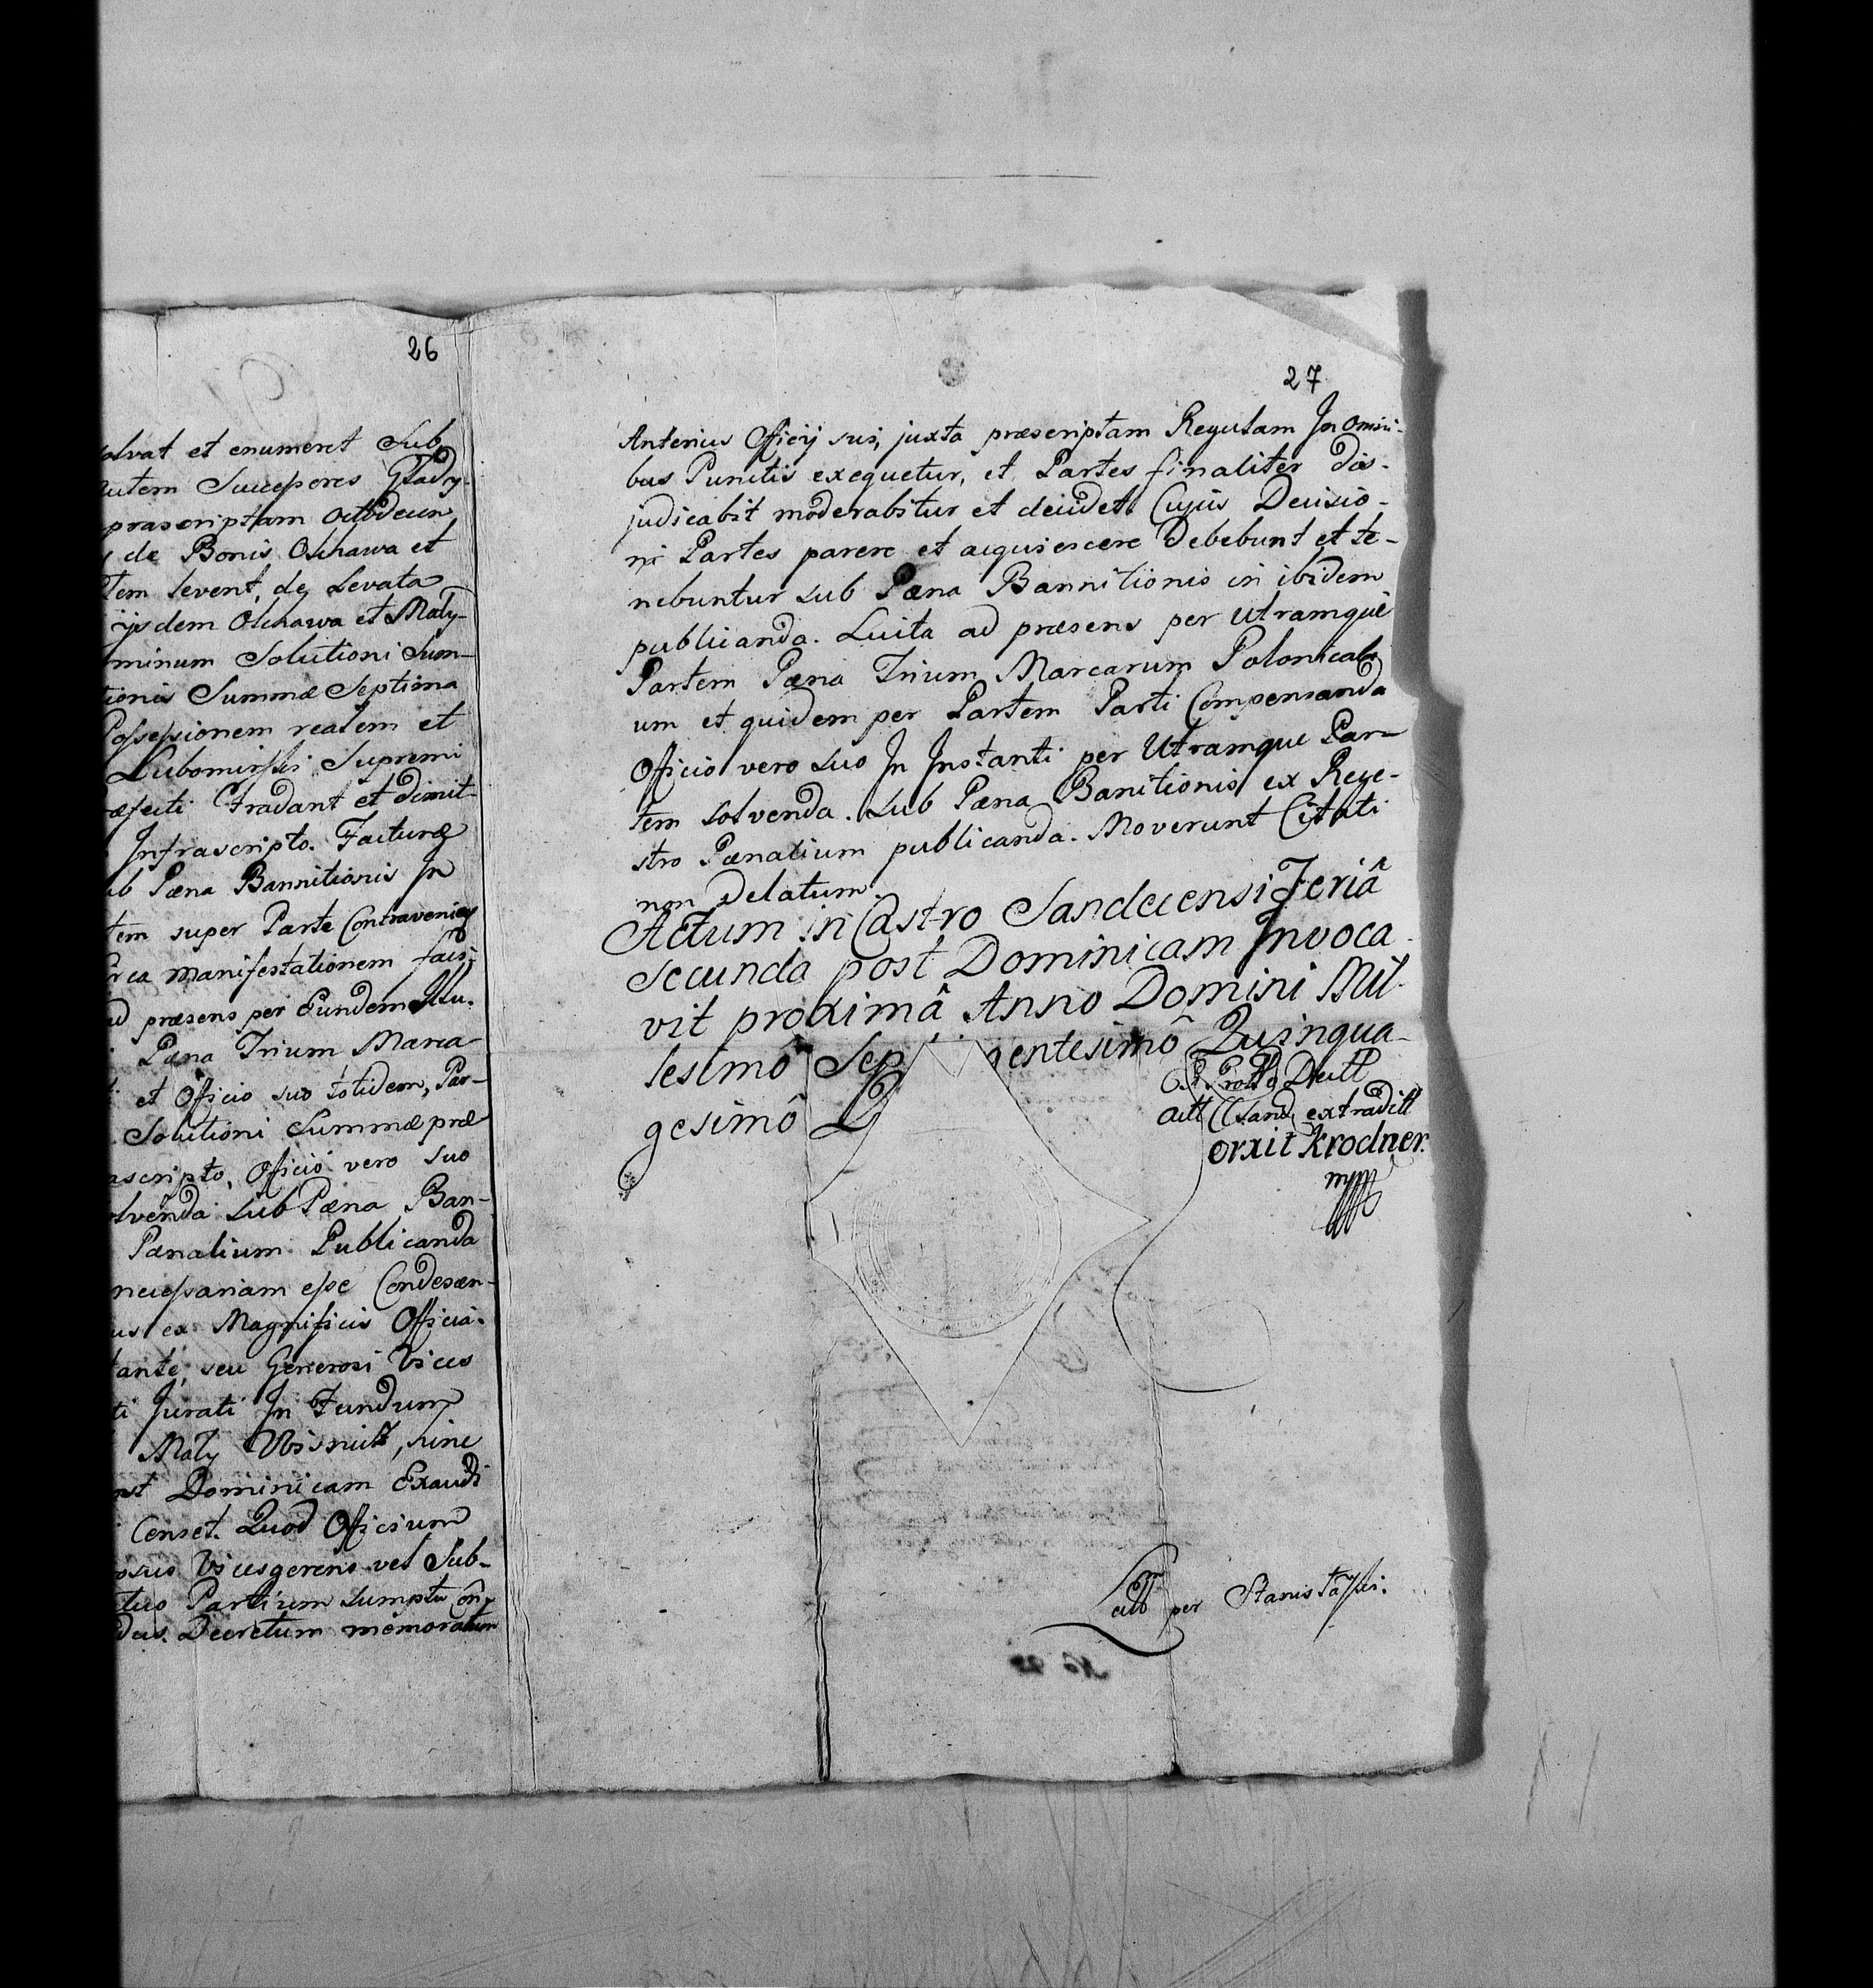 26
solvat et enumeret Sub
autem Successores Głady-
præscriptam Octodecim
de Bonis Olchawa et
tem levent, de Levata
ijsdem Olchawa et Mały
minum Solutioni Sum-
tionis Summæ Septima
Possessionem realem et
Lubomirski Supremi
æfecti tradant et dimit-
Infrascripto. Factura
sub Pæna Bannitionis In
tem super Parte Contravenien
circa manifestationem faci-
ad præsens per Eundem Illu-
Pæna Trium Marca-
et Officio suo totidem, Par-
Solutioni Summæ præ
ascripto, Officio vero suo
olvenda sub Pæna Ban-
Pænalium Publicanda
necessariam esse Condescen-
us ex Magnificis Officia-
tante, seu Generosi Vices
ti Jurati In Fundum
Mały Wisnicz, sine
ost Dominicam Exaudi
Censet. Quod Officium
osus Vicesgerens vel Sub-
tuo Partium sumptu Con-
dens. Decretum memoratum
27
Anterius Officij sui, juxta præscriptam Regulam In omni-
bus Punctis exequetur, et Partes finaliter dis-
judicabit moderabitur et decidet. Cujus Decisio-
ni Partes parere et acquiescere Debebunt et te-
nebuntur sub Pæna Bannitionis in ibidem
publicanda. Luita ad præsens per Utramque
Partem Pæna Trium Marcarum Polonicali
um et quidem per Partem Parti Compensanda
Officio vero suo In Instanti per Utramque Par-
tem solvenda. sub Pæna Banitionis ex Rege-
stro Pænalium publicanda. Moverunt Citati
non Delatum.
Actum in Castro Sandecensi Feriâ
secunda post Dominicam Invoca-
vit proximâ Anno Domini Mil-
lesimô Sep gentesimô Quinqua-
gesimô
extradit
Krodner
mpp
per Stanis